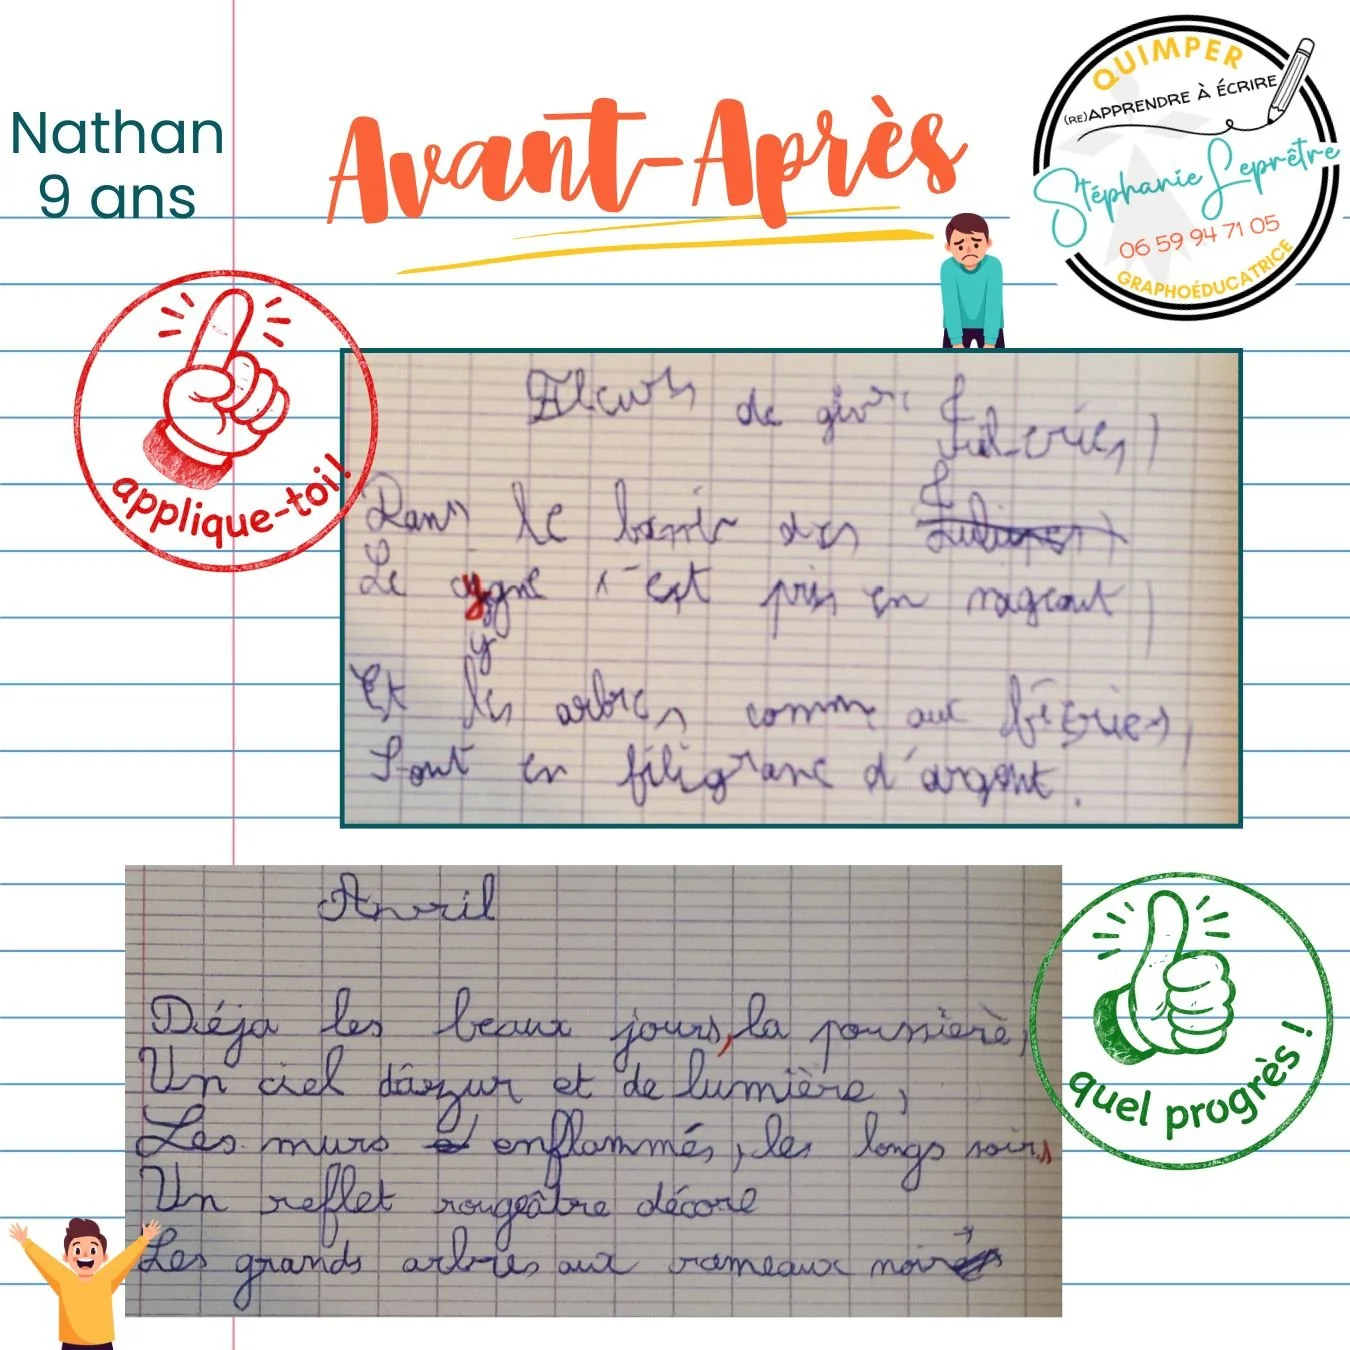 Nathan
9 ans
Avant-Après
QUIMPER
(RE)APPRENDRE À ÉCRIRE
Stéphanie Leprêtre
06 59 94 71 05
GRAPHOÉDUCATRICE
applique-toi!
Fleurs de givre
Dans le bassin des
Le cygne s'est pris en nageant,
y
Et les arbres, comme aux féeries,
Sont en filigrane d'argent.
quel progrès !
Avril
Déja les beaux jours, la poussière,
Un ciel d'âzur et de lumière,
Les murs enflammés, les longs soirs
Un reflet rougeâtre décore
Les grands arbres aux rameaux noirs